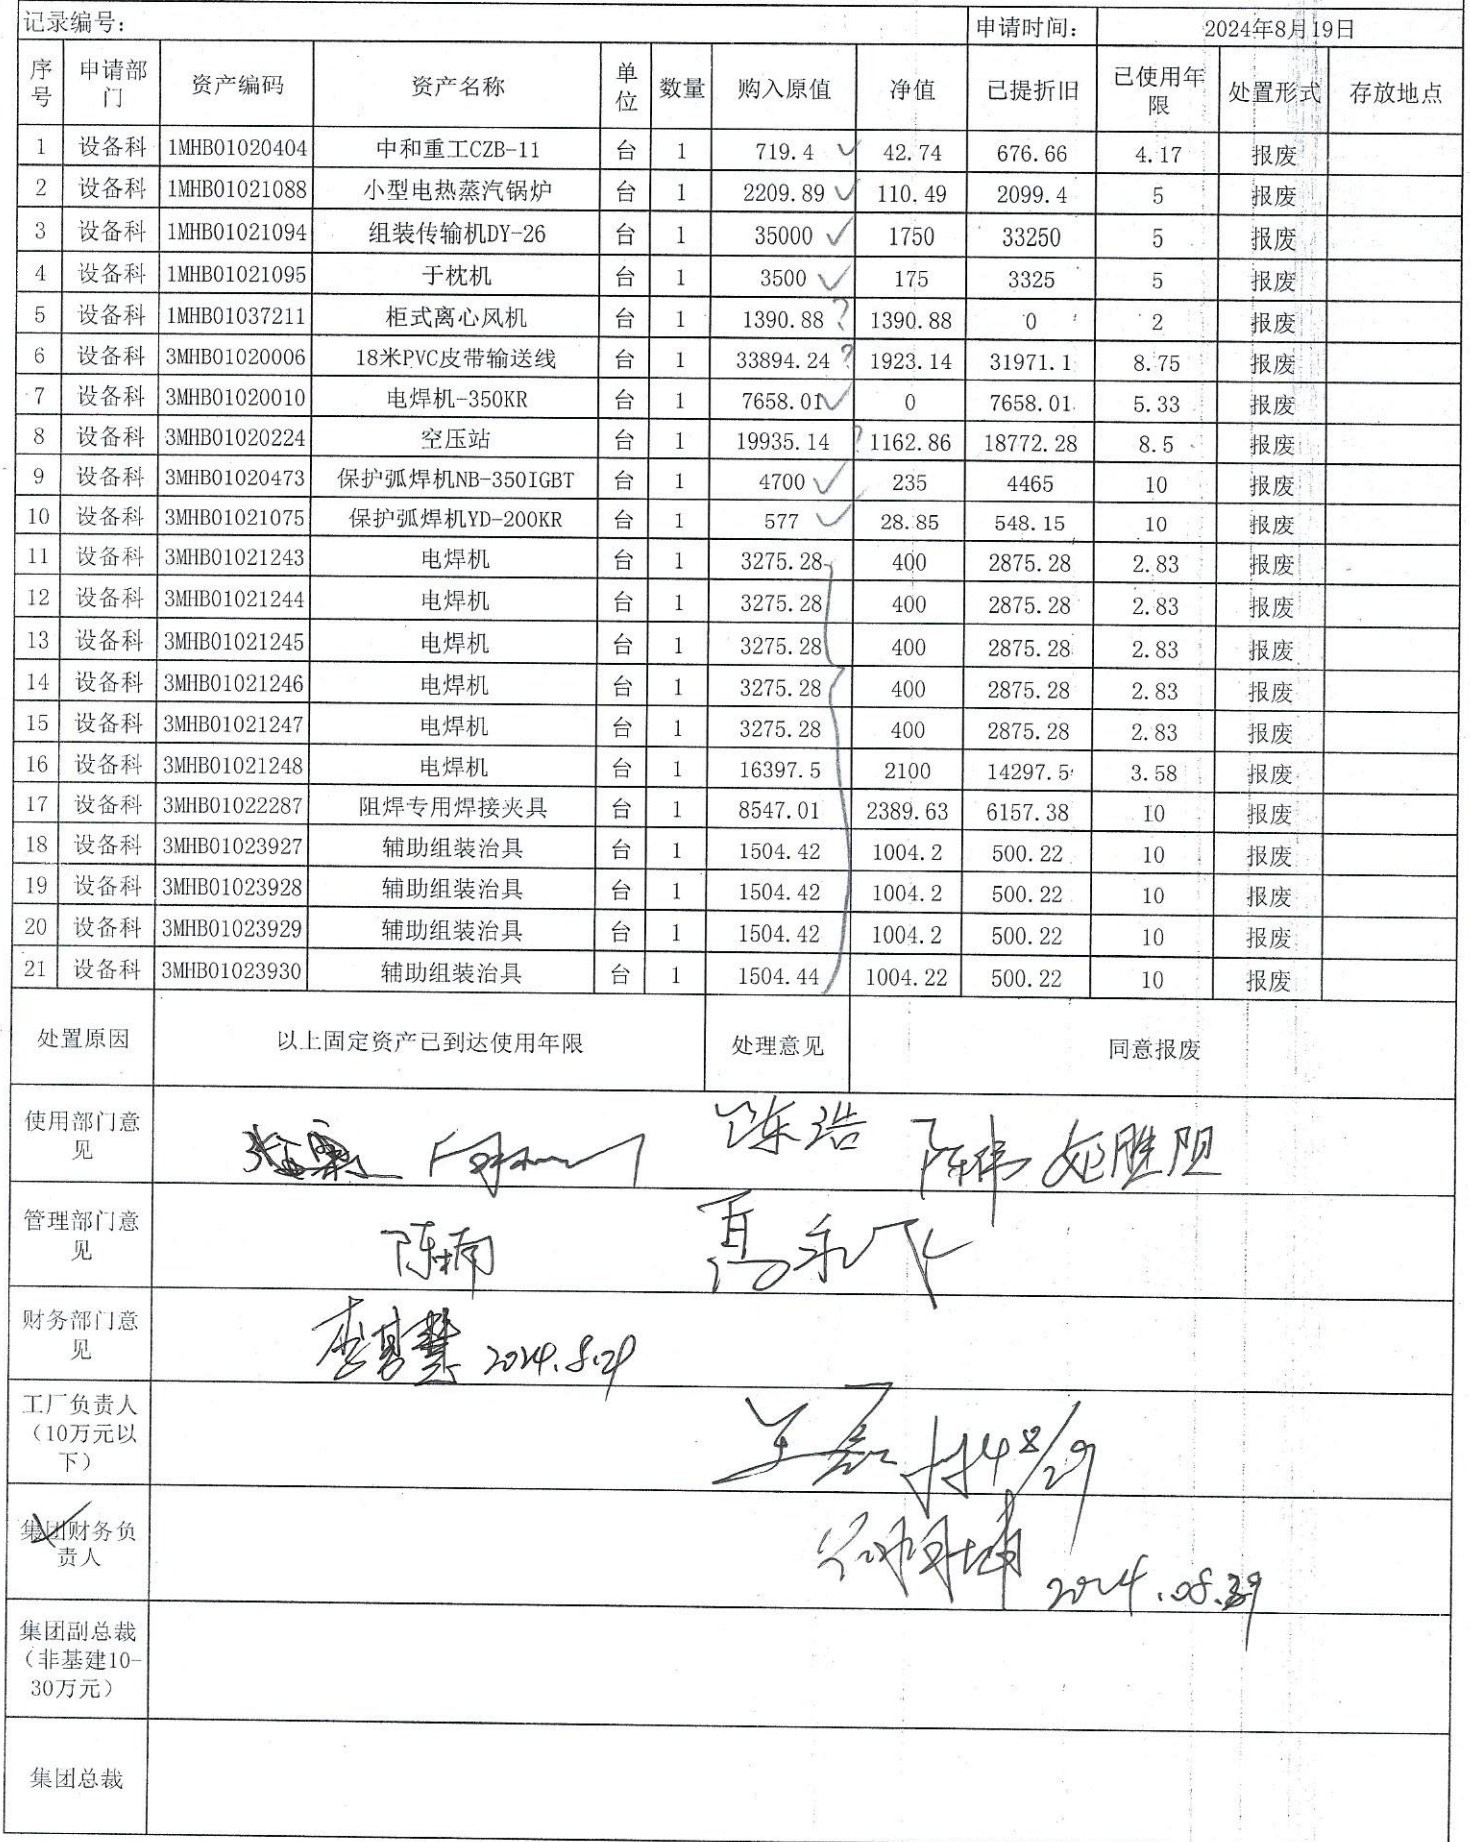 记录编号: 申请时间: 2024年8月19日
序号 申请部门 资产编码 资产名称 单位 数量 购入原值 净值 已提折旧 已使用年限 处置形式 存放地点
1 设备科 1MHB01020404 中和重工CZB-11 台 1 719.4 ✓ 42.74 676.66 4.17 报废
2 设备科 1MHB01021088 小型电热蒸汽锅炉 台 1 2209.89 ✓ 110.49 2099.4 5 报废
3 设备科 1MHB01021094 组装传输机DY-26 台 1 35000 ✓ 1750 33250 5 报废
4 设备科 1MHB01021095 于枕机 台 1 3500 ✓ 175 3325 5 报废
5 设备科 1MHB01037211 柜式离心风机 台 1 1390.88 ? 1390.88 0 2 报废
6 设备科 3MHB01020006 18米PVC皮带输送线 台 1 33894.24 ? 1923.14 31971.1 8.75 报废
7 设备科 3MHB01020010 电焊机-350KR 台 1 7658.01 ✓ 0 7658.01 5.33 报废
8 设备科 3MHB01020224 空压站 台 1 19935.14 ? 1162.86 18772.28 8.5 报废
9 设备科 3MHB01020473 保护弧焊机NB-350IGBT 台 1 4700 ✓ 235 4465 10 报废
10 设备科 3MHB01021075 保护弧焊机YD-200KR 台 1 577 ✓ 28.85 548.15 10 报废
11 设备科 3MHB01021243 电焊机 台 1 3275.28 400 2875.28 2.83 报废
12 设备科 3MHB01021244 电焊机 台 1 3275.28 400 2875.28 2.83 报废
13 设备科 3MHB01021245 电焊机 台 1 3275.28 400 2875.28 2.83 报废
14 设备科 3MHB01021246 电焊机 台 1 3275.28 400 2875.28 2.83 报废
15 设备科 3MHB01021247 电焊机 台 1 3275.28 400 2875.28 2.83 报废
16 设备科 3MHB01021248 电焊机 台 1 16397.5 2100 14297.5 3.58 报废
17 设备科 3MHB01022287 阻焊专用焊接夹具 台 1 8547.01 2389.63 6157.38 10 报废
18 设备科 3MHB01023927 辅助组装治具 台 1 1504.42 1004.2 500.22 10 报废
19 设备科 3MHB01023928 辅助组装治具 台 1 1504.42 1004.2 500.22 10 报废
20 设备科 3MHB01023929 辅助组装治具 台 1 1504.42 1004.2 500.22 10 报废
21 设备科 3MHB01023930 辅助组装治具 台 1 1504.44 1004.22 500.22 10 报废
处置原因 以上固定资产已到达使用年限 处理意见 同意报废
使用部门意见 陈浩 陈伟
管理部门意见 陈楠
财务部门意见 2024.8.29
工厂负责人（10万元以下） 8/29
集团财务负责人 2024.08.29
集团副总裁（非基建10-30万元）
集团总裁